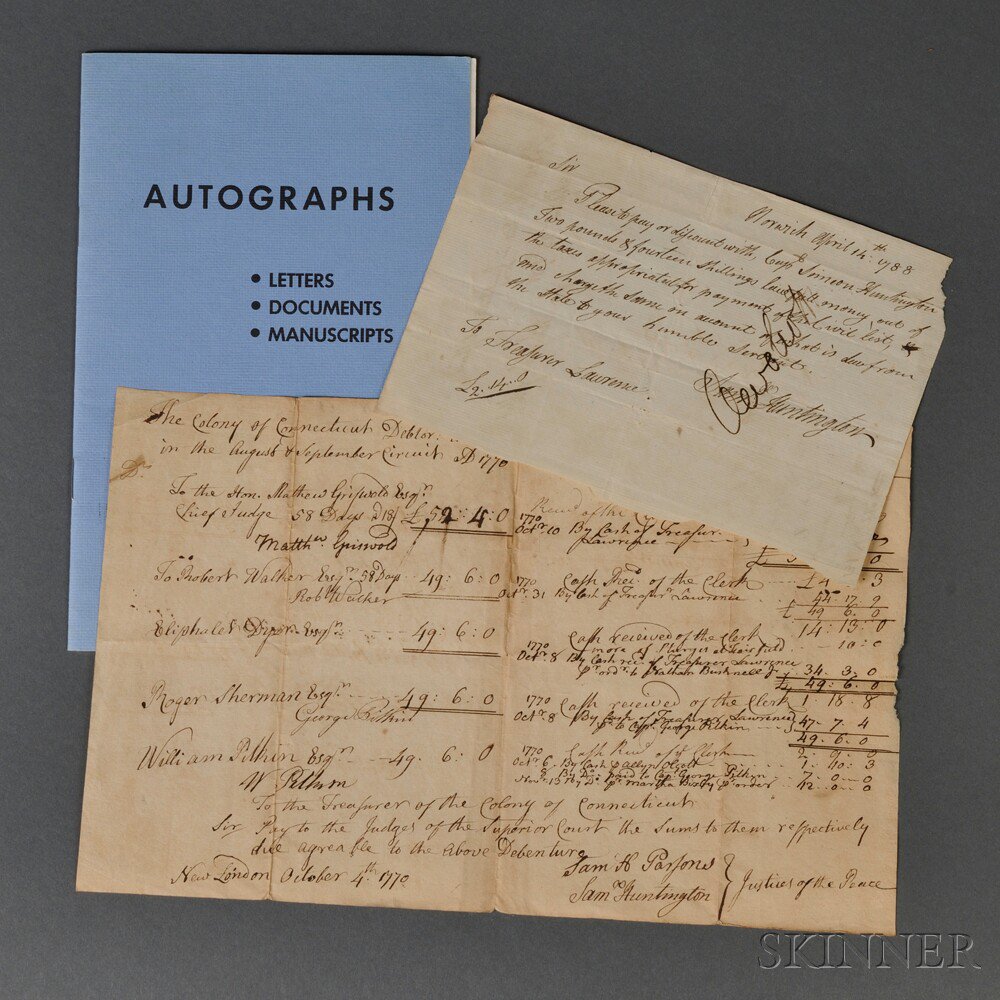 AUTOGRAPHS
• LETTERS
• DOCUMENTS
• MANUSCRIPTS
Norwich April 14th. 1788
Sir
Please to pay or discount with Capt. Simeon Huntington
Two pounds & fourteen Shillings lawfull money out of
the taxes appropriated for payment of the Civil list,
and charge the same on account of what is due from
the State to your humble Servant.
To Treasurer Lawrence.
Huntington
£2.14.0
The Colony of Connecticut Debtor
in the August & September Circuit AD 1770
Dr.
To the Hon. Mathew Griswold Esqr.
Chief Judge 58 Days @ 18/ £52:4:0
Matthw Griswold
To Robert Walker Esqr. 58 Days 49:6:0
Rob Walker
Eliphalet Dyer Esqr. 49:6:0
Roger Sherman Esqr. 49:6:0
George Pitkin
William Pitkin Esqr. 49. 6:0
W Pitkin
1770
Octr. 10 By Cash of Treasurr
Lawrence
1770 Cash Recd. of the Clerk £4 3
Octr. 31 By Cash of Treasurr Lawrence 44 17 9
£ 49 6 0
Cash received of the Clerk 14:13:0
1770 more of 10:0
Octr. 8 By Cash recd. of Treasurer Lawrence
pr. ordr. to Nathan Bushnell Jr. 34. 3. 0
£ 49:6:0
1770 Cash received of the Clerk 1:18:8
Octr. 8 By Cash of Treasurer Lawrence
pr. to Capt. George Pitkin 47.7.4
49.6.0
1770 Cash Recd of ye Clerk 3
Octr. 6 By Cash Allyn Olcott
By Do. paid to Capt George Pitkin 7:0:0
Novr. 15 By Do. pr. Martha pr. order 42.0.0
To the Treasurer of the Colony of Connecticut
Sir Pay to the Judges of the Superior Court the Sums to them respectively
due agreable to the above Debenture
New London October 4th. 1770
Sam H Parsons
Saml Huntington
Justices of the Peace
SKINNER